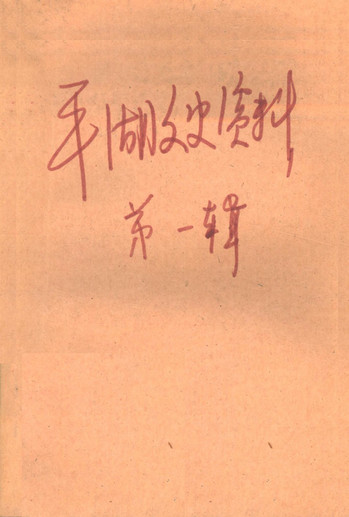 平湖文史资料
第一辑